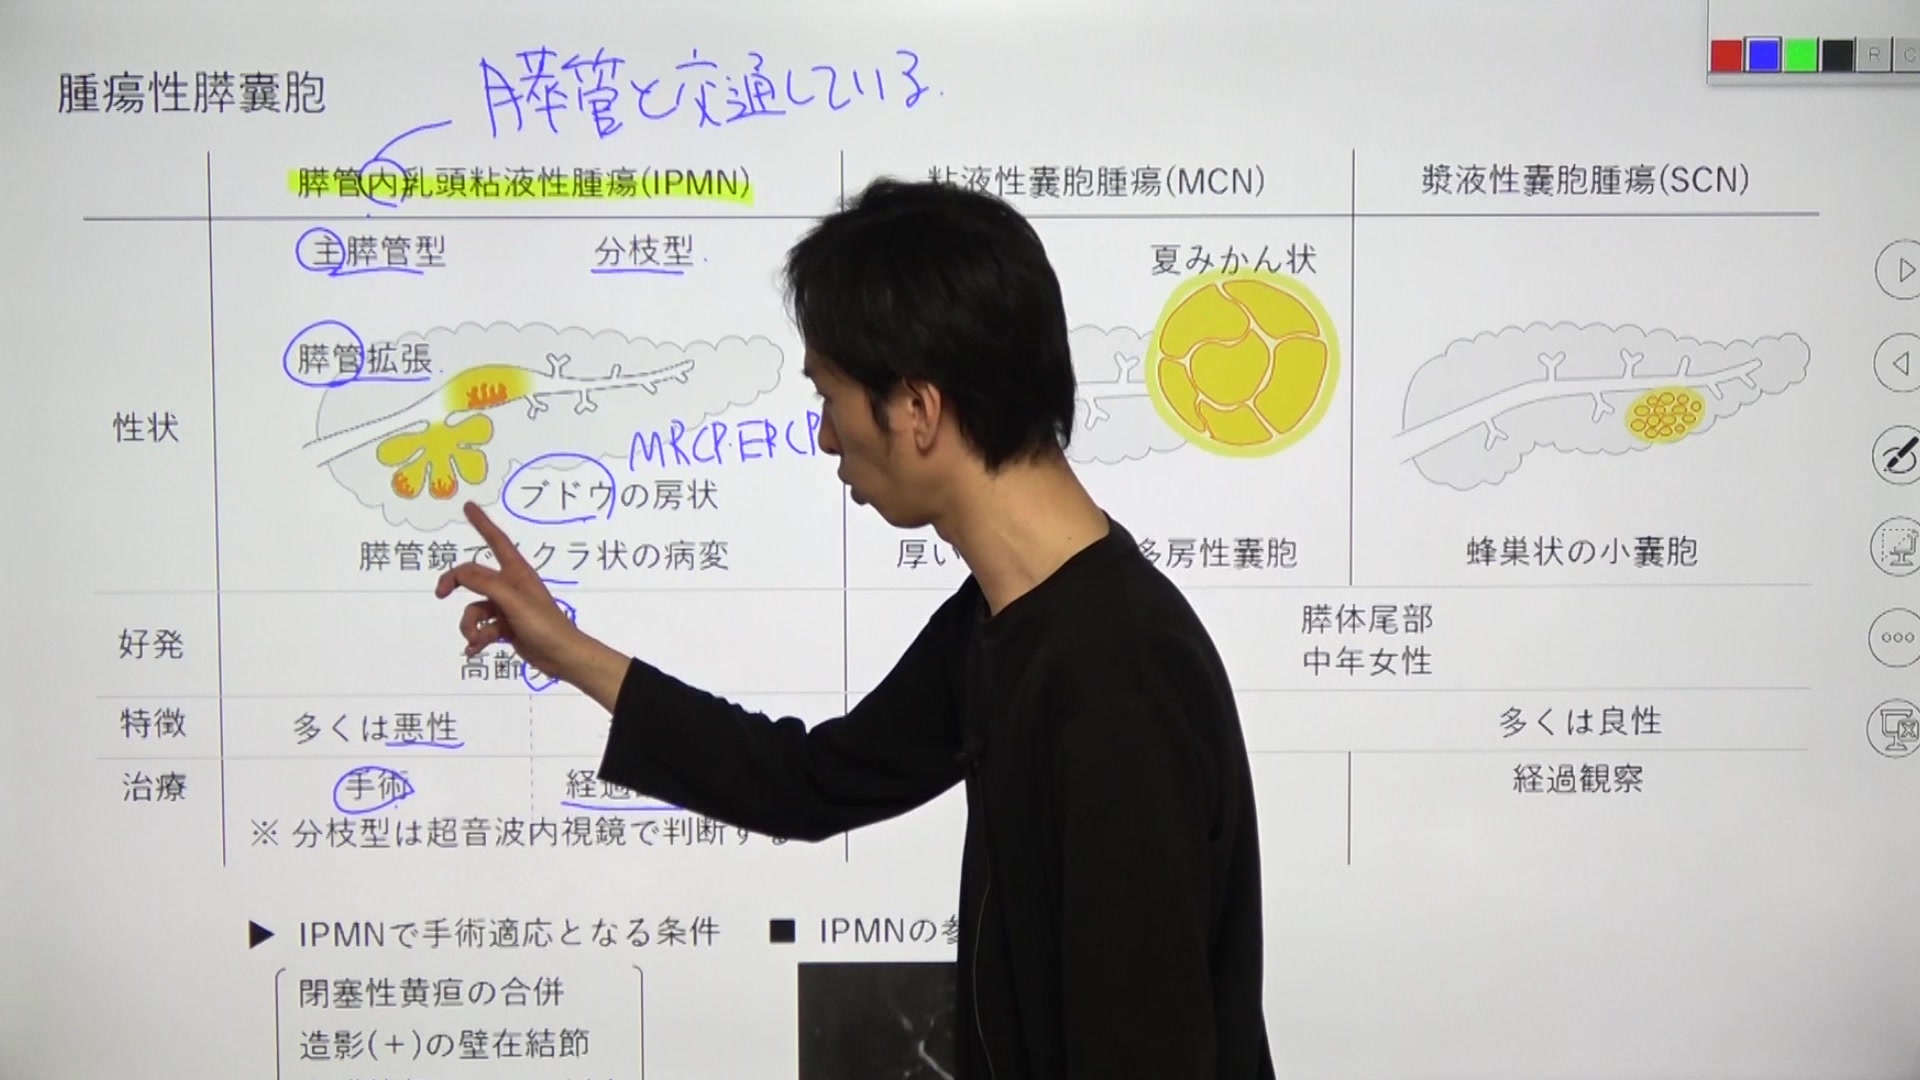 腫瘍性膵嚢胞
膵管と交通している.
膵管内乳頭粘液性腫瘍(IPMN)
粘液性嚢胞腫瘍(MCN)
漿液性嚢胞腫瘍(SCN)
主膵管型
分枝型
夏みかん状
膵管拡張
性状
MRCP.ERCP
ブドウの房状
膵管鏡でイクラ状の病変
厚い
多房性嚢胞
蜂巣状の小嚢胞
好発
高齢
膵体尾部
中年女性
特徴
多くは悪性
多くは良性
治療
手術
経過
経過観察
※ 分枝型は超音波内視鏡で判断する
▶ IPMNで手術適応となる条件
■ IPMNの参
閉塞性黄疸の合併
造影(+)の壁在結節
R
C